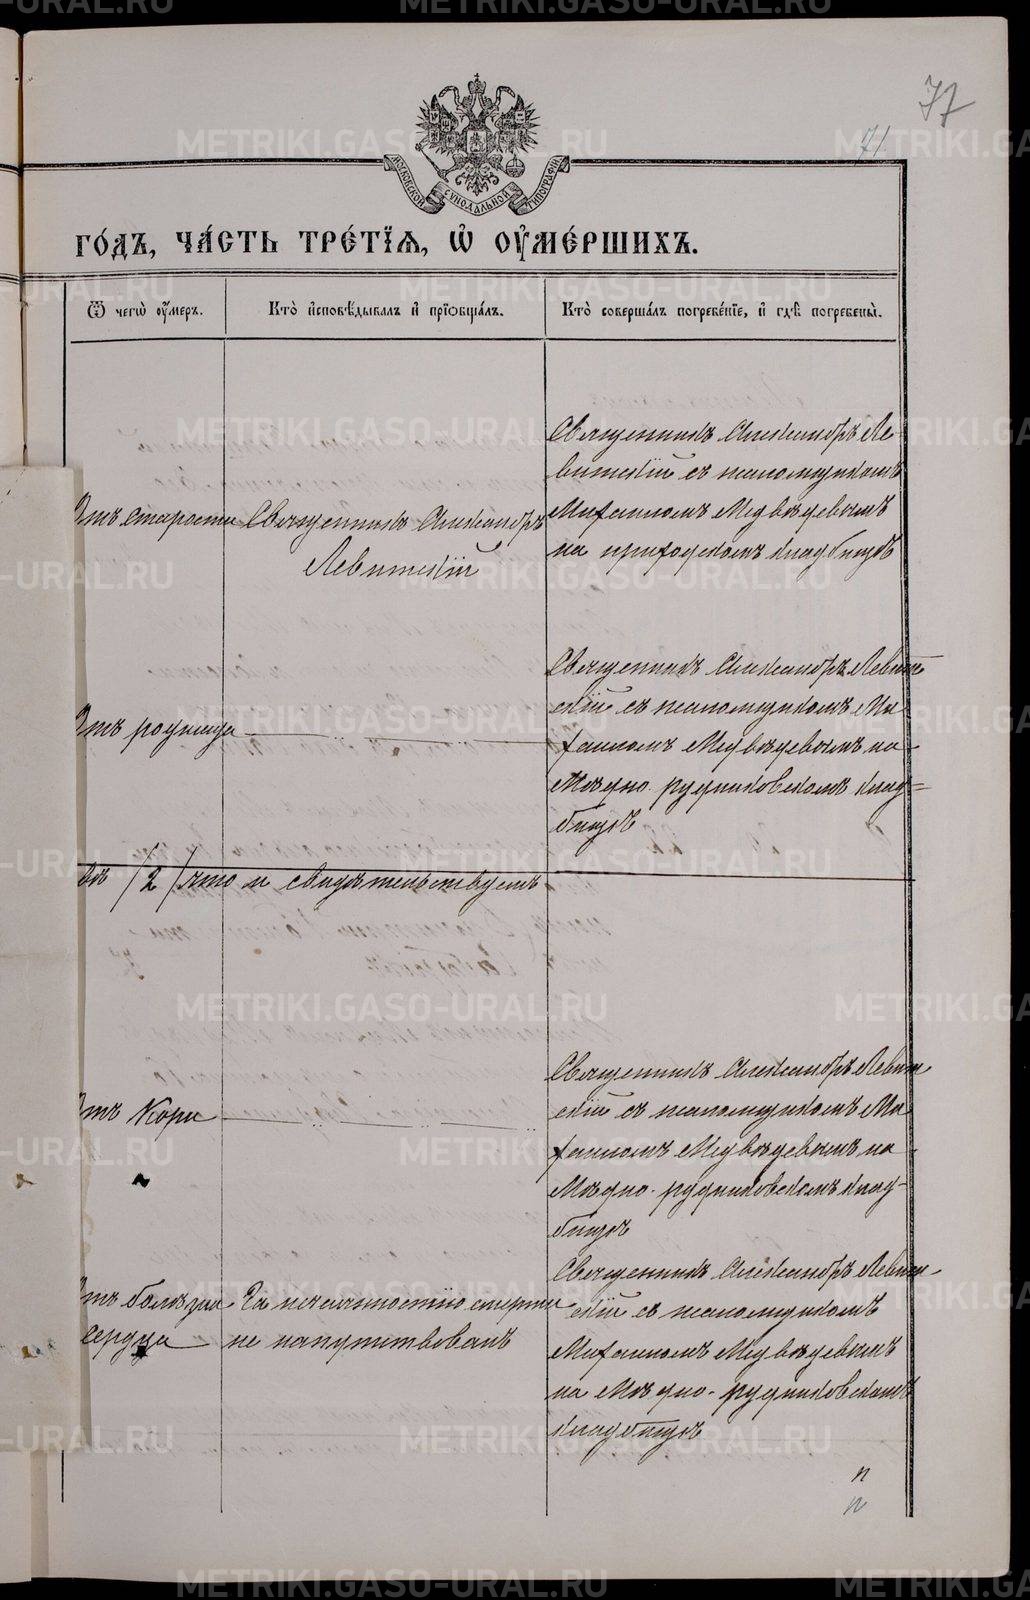 77
71
МОСКОВСКОЙ СУНОДАЛЬНОЙ ТИПОГРАФІИ
го́дъ, ча́сть тре́тїѧ, ѡ҆ ᲂу҆ме́ршихъ.
Ѿ чегѡ̀ ᲂу҆́меръ.
Кто̀ и҆сповѣ́дывалъ и҆ прїѡбща́лъ.
Кто̀ соверша́лъ погребе́нїе, и҆ гдѣ̀ погребены̀.
Отъ старости
Священникъ Александръ
Левитскій
Священникъ Александръ Ле-
витскій съ псаломщикомъ
Михаиломъ Медвѣдевымъ
на приходскомъ кладбищѣ
Отъ родимца
Священникъ Александръ Левит
скій съ псаломщикомъ Ми
хаиломъ Медвѣдевымъ на
Мѣдно-рудниковскомъ клад-
бищѣ
/2/ что и свидѣтельствуемъ
Отъ Кори
Священникъ Александръ Левит
скій съ псаломщикомъ Ми
хаиломъ Медвѣдевымъ на
Мѣдно-рудниковскомъ клад-
бищѣ
Отъ болѣзни
сердца
За нечаянностію смерти
не напутствованъ
Священникъ Александръ Левит
скій съ псаломщикомъ
Михаиломъ Медвѣдевымъ
на Мѣдно-рудниковскомъ
кладбищѣ
METRIKI.GASO-URAL.RU